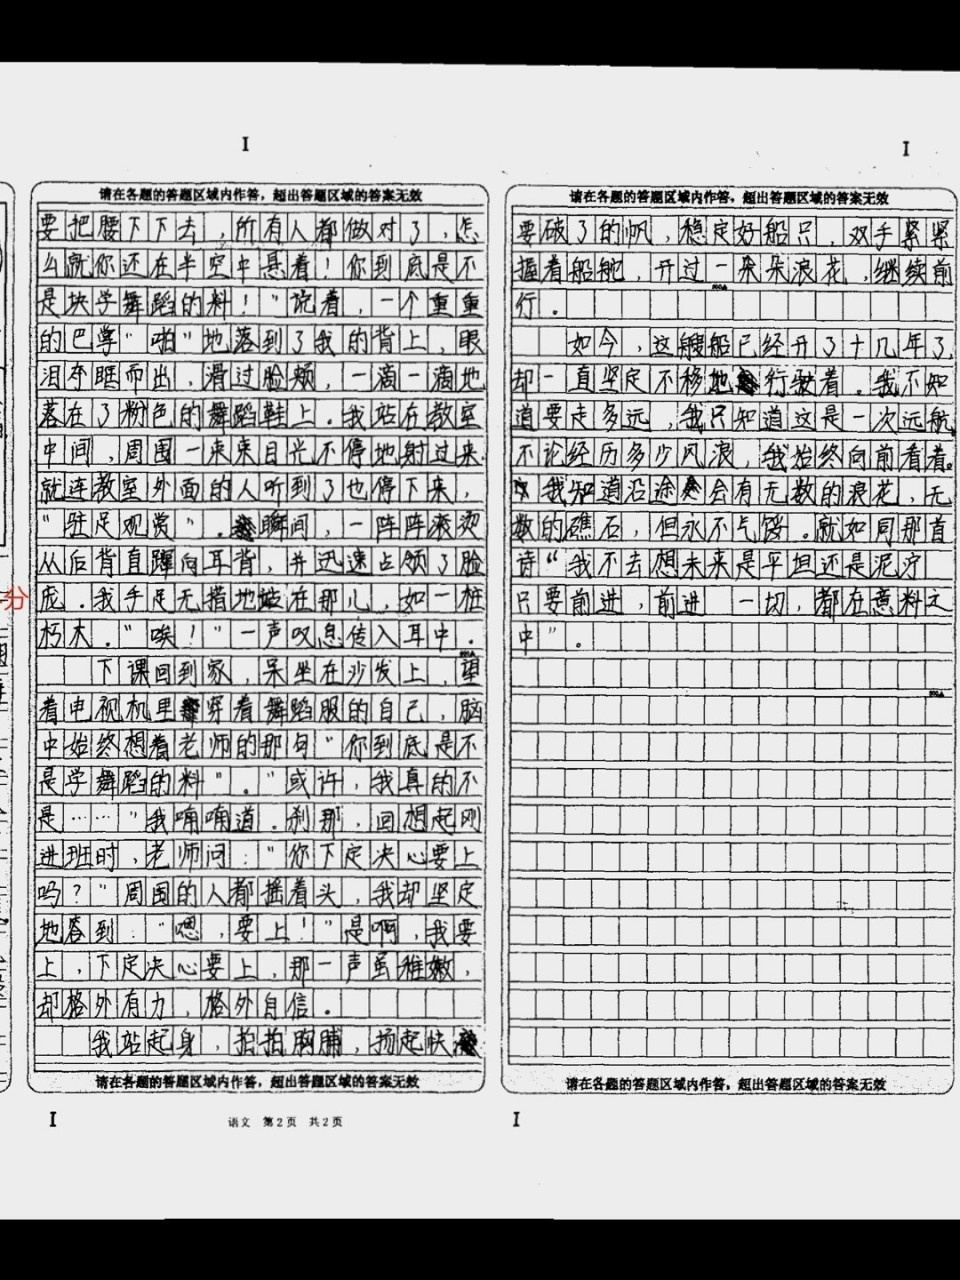 I
I
请在各题的答题区域内作答，超出答题区域的答案无效
要把腰下下去，所有人都做对了，怎
么就你还在半空中悬着！你到底是不
是块学舞蹈的料！"说着，一个重重
的巴掌"啪"地落到了我的背上，眼
泪夺眶而出，滑过脸颊，一滴一滴地
落在了粉色的舞蹈鞋上。我站在教室
中间，周围一束束目光不停地射过来，
就连教室外面的人听到了也停下来，
"驻足观赏"。瞬间，一阵阵滚烫
从后背直蹿向耳背，并迅速占领了脸
庞。我手足无措地站在那儿，如一桩
朽木。"唉！"一声叹息传入耳中。
下课回到家，呆坐在沙发上，望
着电视机里穿着舞蹈服的自己，脑
中始终想着老师的那句"你到底是不
是学舞蹈的料"。"或许，我真的不
是……"我喃喃道。刹那，回想起刚
进班时，老师问："你下定决心要上
吗？"周围的人都摇着头，我却坚定
地答到："嗯，要上！"是啊，我要
上，下定决心要上，那一声虽稚嫩，
却格外有力，格外自信。
我站起身，拍拍胸脯，扬起快
请在各题的答题区域内作答，超出答题区域的答案无效
I
语文 第2页 共2页
请在各题的答题区域内作答，超出答题区域的答案无效
要破了的帆，稳定好船只，双手紧紧
握着船舵，开过一朵朵浪花，继续前
行。
如今，这艘船已经开了十几年了，
却一直坚定不移地行驶着。我不知
道要走多远，我只知道这是一次远航，
不论经历多少风浪，我始终向前看着。
我知道沿途会有无数的浪花，无
数的礁石，但永不气馁。就如同那首
诗"我不去想未来是平坦还是泥泞
只要前进，前进 一切，都在意料之
中"。
请在各题的答题区域内作答，超出答题区域的答案无效
I
分